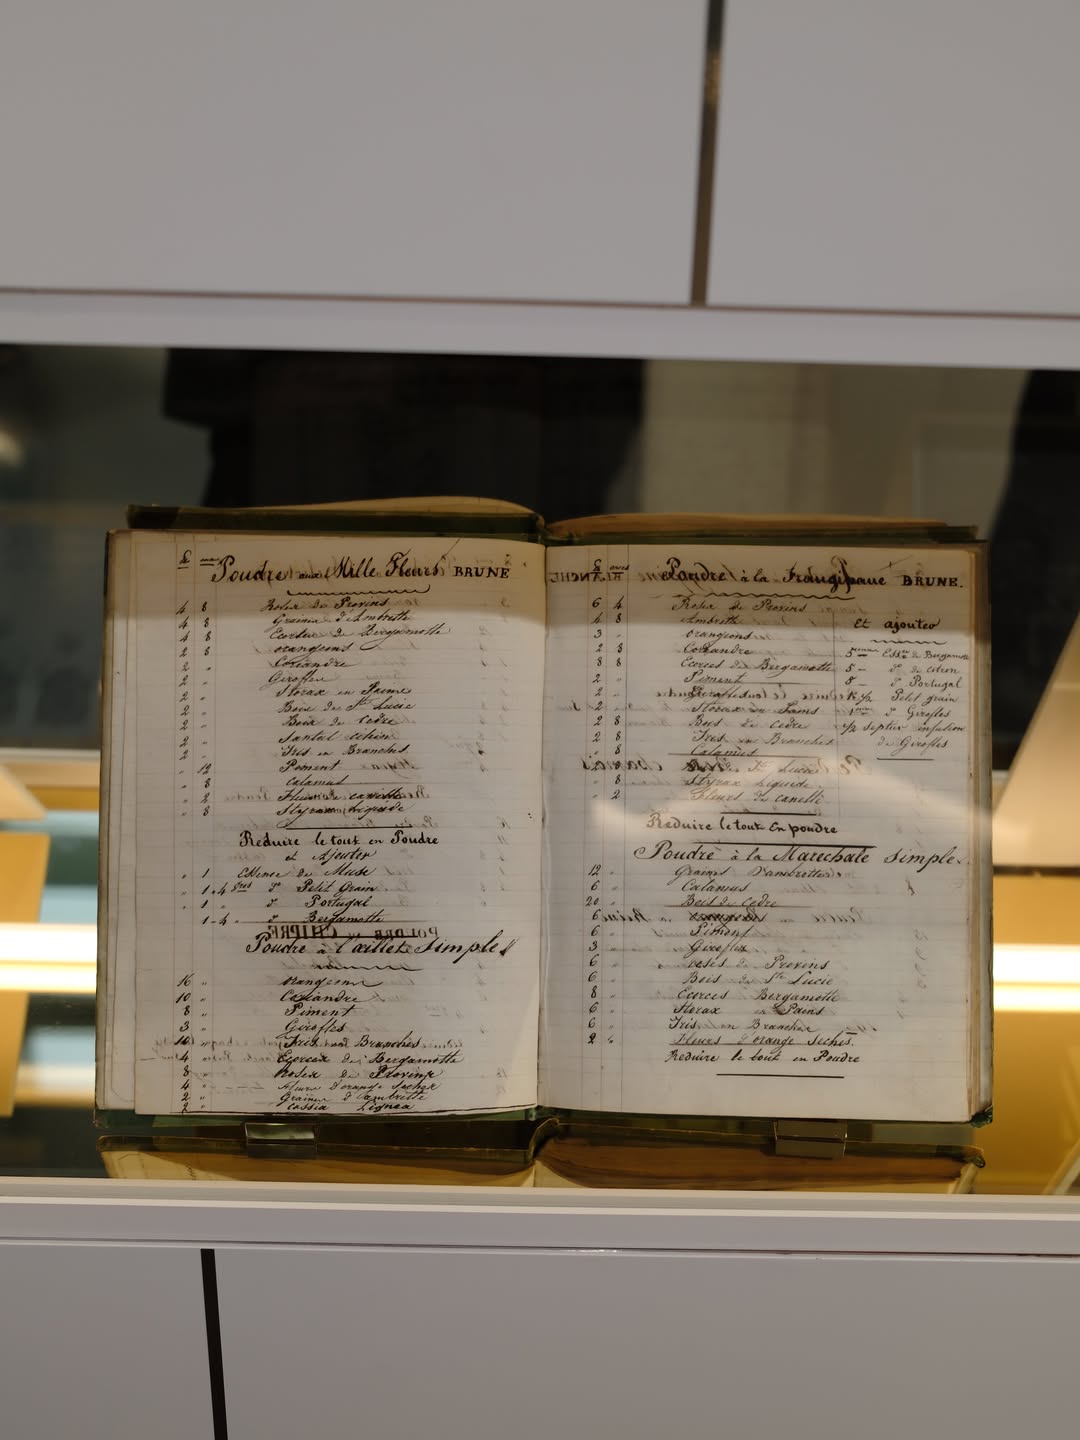 £ onces
Poudre aux Mille Fleurs BRUNE
4 8 Roses de Provins
4 8 Graines d'Ambrette
4 8 Ecorces de Bergamotte
2 8 orangeons
2 " Coriandre
2 " Girofles
2 " Storax en Pains
2 " Bois de Ste Lucie
2 " Bois de Cedre
2 " Santal citrin
2 " Iris en Branches
" 12 Piment
" 8 Calamus
" 2 Fleurs de canelle
" 8 Styrax Liquide
Reduire le tout en Poudre
et Ajouter
" 1 Essence de Musc
" 1 4 d° Petit Grain
" 1 " d° Portugal
1 4 " d° Bergamotte
Poudre à l'œillet Simple
16 " orangeons
10 " Coriandre
8 " Piment
3 " Girofles
Iris en Branches
4 " Ecorces de Bergamotte
8 " Roses de Provins
4 " fleurs d'orange seches
2 " Graines d'Ambrette
2 " Cassia Lignea
£ onces
Poudre à la Frangipane BRUNE.
6 4 Roses de Provins
4 8 Ambrette
3 " orangeons
2 8 Coriandre
8 8 Ecorces de Bergamotte
2 " Piment
2 " Girofles
2 " Storax en Pains
2 8 Bois de Cedre
2 8 Iris en Branches
" 8 Calamus
Ste Lucie
" 8 Styrax Liquide
" 2 Fleurs de canelle
Et ajouter
5 onces Essce de Bergamotte
5 - d° de citron
8 - d° Portugal
Petit grain
1 once d° Girofles
1/2 Septier infusion
de Girofles
Reduire le tout En poudre
Poudre à la Marechale Simple.
12 " Graines D'ambrettes
6 " Calamus
20 " Bois de Cedre
6 " orangeons
6 " Piment
3 " Girofles
6 " roses de Provins
6 " Bois de Ste Lucie
8 " Ecorces Bergamotte
6 " Storax en Pains
6 " Iris en Branches
2 " Fleurs d'orange Seches.
Reduire le tout en Poudre